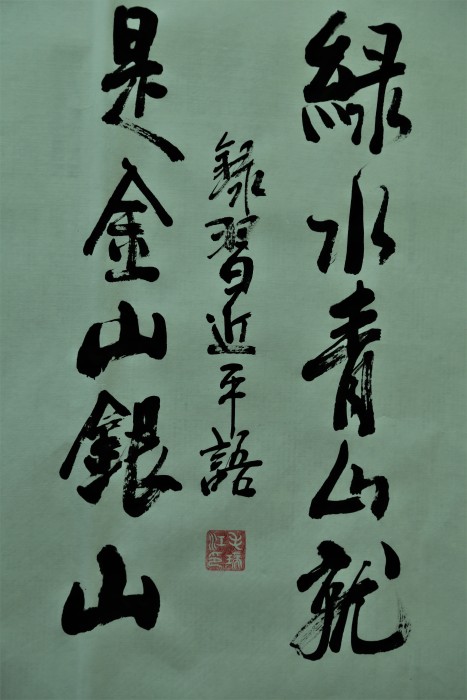 綠水青山就
是金山銀山
錄習近平語